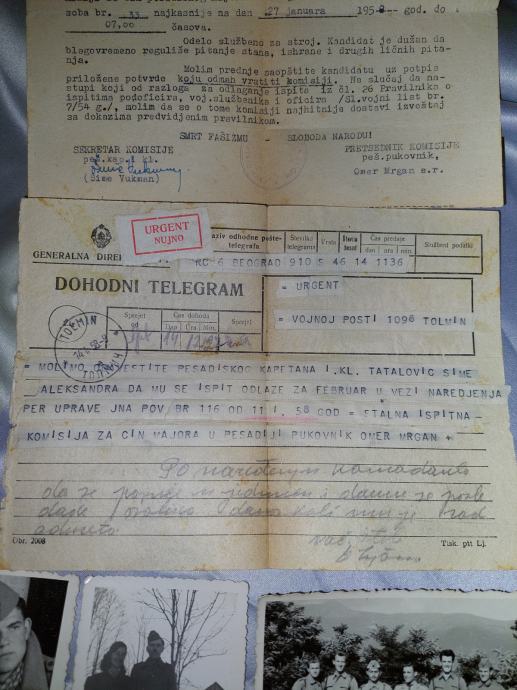 soba br. 33 najkasnije na dan 27 januara 1958 god. do
07,00 časova.
Odelo službeno za stroj. Kandidat je dužan da
blagovremeno reguliše pitanje stana, ishrane i drugih ličnih pita-
nja.
Molim prednje saopštite kandidatu uz potpis
priložene potvrde koju odmah vratiti komisiji. Na slučaj da na-
stupi koji od razloga za odlaganje ispita iz čl. 26 Pravilnika o
ispitima podoficira, voj.službenika i oficira /Sl.vojni list br.
7/54 g./, molim da se o tome komisiji najhitnije dostavi izveštaj
sa dokazima predvidjenim pravilnikom.
SMRT FAŠIZMU - SLOBODA NARODU!
SEKRETAR KOMISIJE
peš.kap.I kl.
(Sime Vukman)
PRETSEDNIK KOMISIJE
peš.pukovnik,
Omer Mrgan s.r.
URGENT
NUJNO
GENERALNA DIREK
aziv odhodne pošte-
telegrafa
Številka
telegrama
Vrsta
Število
besed
Čas predaje
dan ura min.
Službeni podatki
RC 6 BEOGRAD 910 S 46 14 1136
DOHODNI TELEGRAM
= URGENT
= VOJNOJ POSTI 1096 TOLMIN
Sprejet
od
Čas dohoda
Dan Ura Min.
Sprejel
TOLMIN
= MOLIMO OBVESTITE PESADISKOG KAPETANA I.KL. TATALOVIC SIME
ALEKSANDRA DA MU SE ISPIT ODLAZE ZA FEBRUAR U VEZI NAREDJENJA
PER UPRAVE JNA POV BR 116 OD 11 I. 58 GOD = STALNA ISPITNA
KOMISIJA ZA CIN MAJORA U PESADIJI PUKOVNIK OMER MRGAN +
Po naređenju komandanta
da se
Obr. 2008
Tisk. ptt Lj.